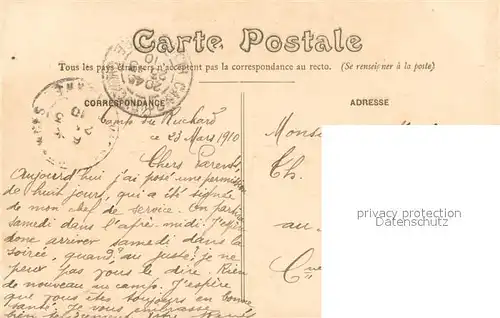 Carte Postale
Tous les pays étrangers n'acceptent pas la correspondance au recto. (Se renseigner à la poste)
CORRESPONDANCE
ADRESSE
Camp du Ruchard
ce 23 Mars 1910
Chers Parents,
Aujourd'hui j'ai posé une permission
de huit jours, qui a été signée
de mon chef de service. On part
samedi dans l'après-midi. J'espère
donc arriver samedi dans la
soirée, quand au juste? je ne
peux pas vous le dire. Rien
de nouveau au camp. J'espère
que vous êtes toujours en bonne
santé. Je vous embrasse
bien
Mons
Ch.
au
Cne
privacy protection
Datenschutz